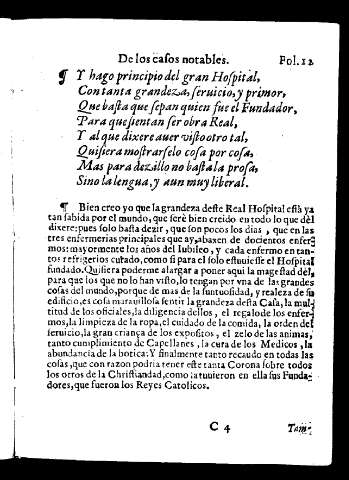 De los casos notables. Fol. 12
¶ Y hago principio del gran Hospital,
Con tanta grandeza, seruicio, y primor,
Que basta que sepan quien fue el Fundador,
Para que sientan ser obra Real,
Y al que dixere auer visto otro tal,
Quisiera mostrarselo cosa por cosa,
Mas para dezillo no basta la prosa,
Sino la lengua, y aun muy liberal.
¶ Bien creo yo que la grandeza deste Real Hospital està ya
tan sabida por el mundo, que serè bien creido en todo lo que del
dixere: pues solo basta dezir, que son pocos los dias, que en las
tres enfermerias principales que ay, abaxen de docientos enfer-
mos: mayormente los años del Iubileo, y cada enfermo en tan-
tos refrigerios cutado, como si para el solo estuuiesse el Hospital
fundado. Quisiera poderme alargar a poner aqui la magestad del,
para que los que no lo han visto, lo tengan por vna de las grandes
cosas del mundo, porque de mas de la suntuosidad, y realeza de su
edificio, es cosa marauillosa sentir la grandeza desta Casa, la mul-
titud de los oficiales, la diligencia dellos, el regalo de los enfer-
mos, la limpieza de la ropa, el cuidado de la comida, la orden del
seruicio, la gran criança de los expositos, el zelo de las animas,
tanto cumplimiento de Capellanes, la cura de los Medicos, la
abundancia de la botica: Y finalmente tanto recaudo en todas las
cosas, que con razon podria tener este tanta Corona sobre todos
los otros de la Christiandad, como la tuuieron en ella sus Funda-
dores, que fueron los Reyes Catolicos.
C 4 Tam-